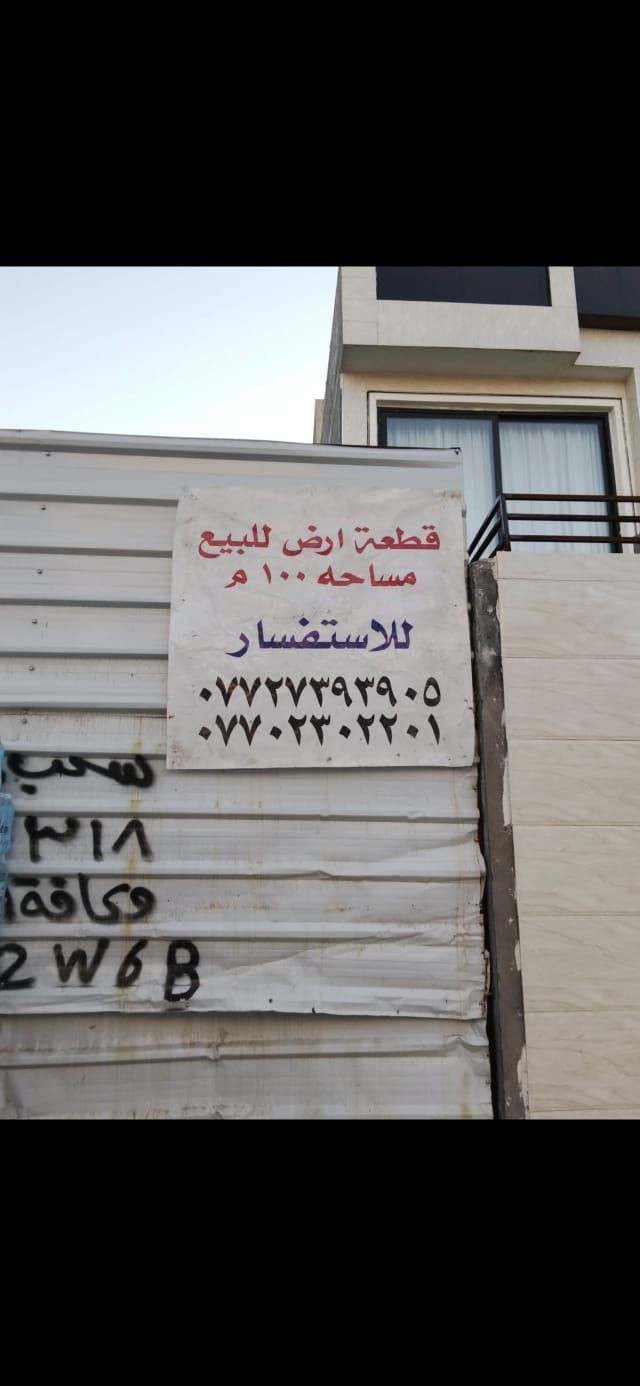 قطعة ارض للبيع
مساحه ١٠٠ م
للاستفسار
٠٧٧٢٧٣٩٣٩٠٥
٠٧٧٠٢٣٠٢٢٠١
سحب
٣١٨
وكافة
2W6B